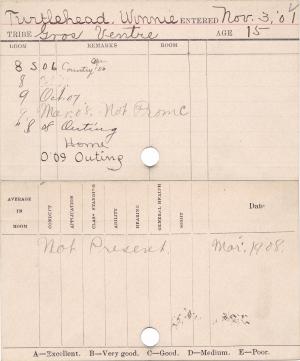 Turtlehead, Winnie ENTERED Nov. 3, '01
TRIBE Gros Ventre AGE 15
ROOM REMARKS ROOM
8 S 06 Country
8
9 Oct. 07
Mar. 08. Not Prom
8 08 Outing
Home
0'09 Outing
AVERAGE IN ROOM CONDUCT APPLICATION CLASS STANDING ABILITY HEARING GENERAL HEALTH SIGHT Date
Not Present Mar. 1908.
A—Excellent. B—Very good. C—Good. D—Medium. E—Poor.